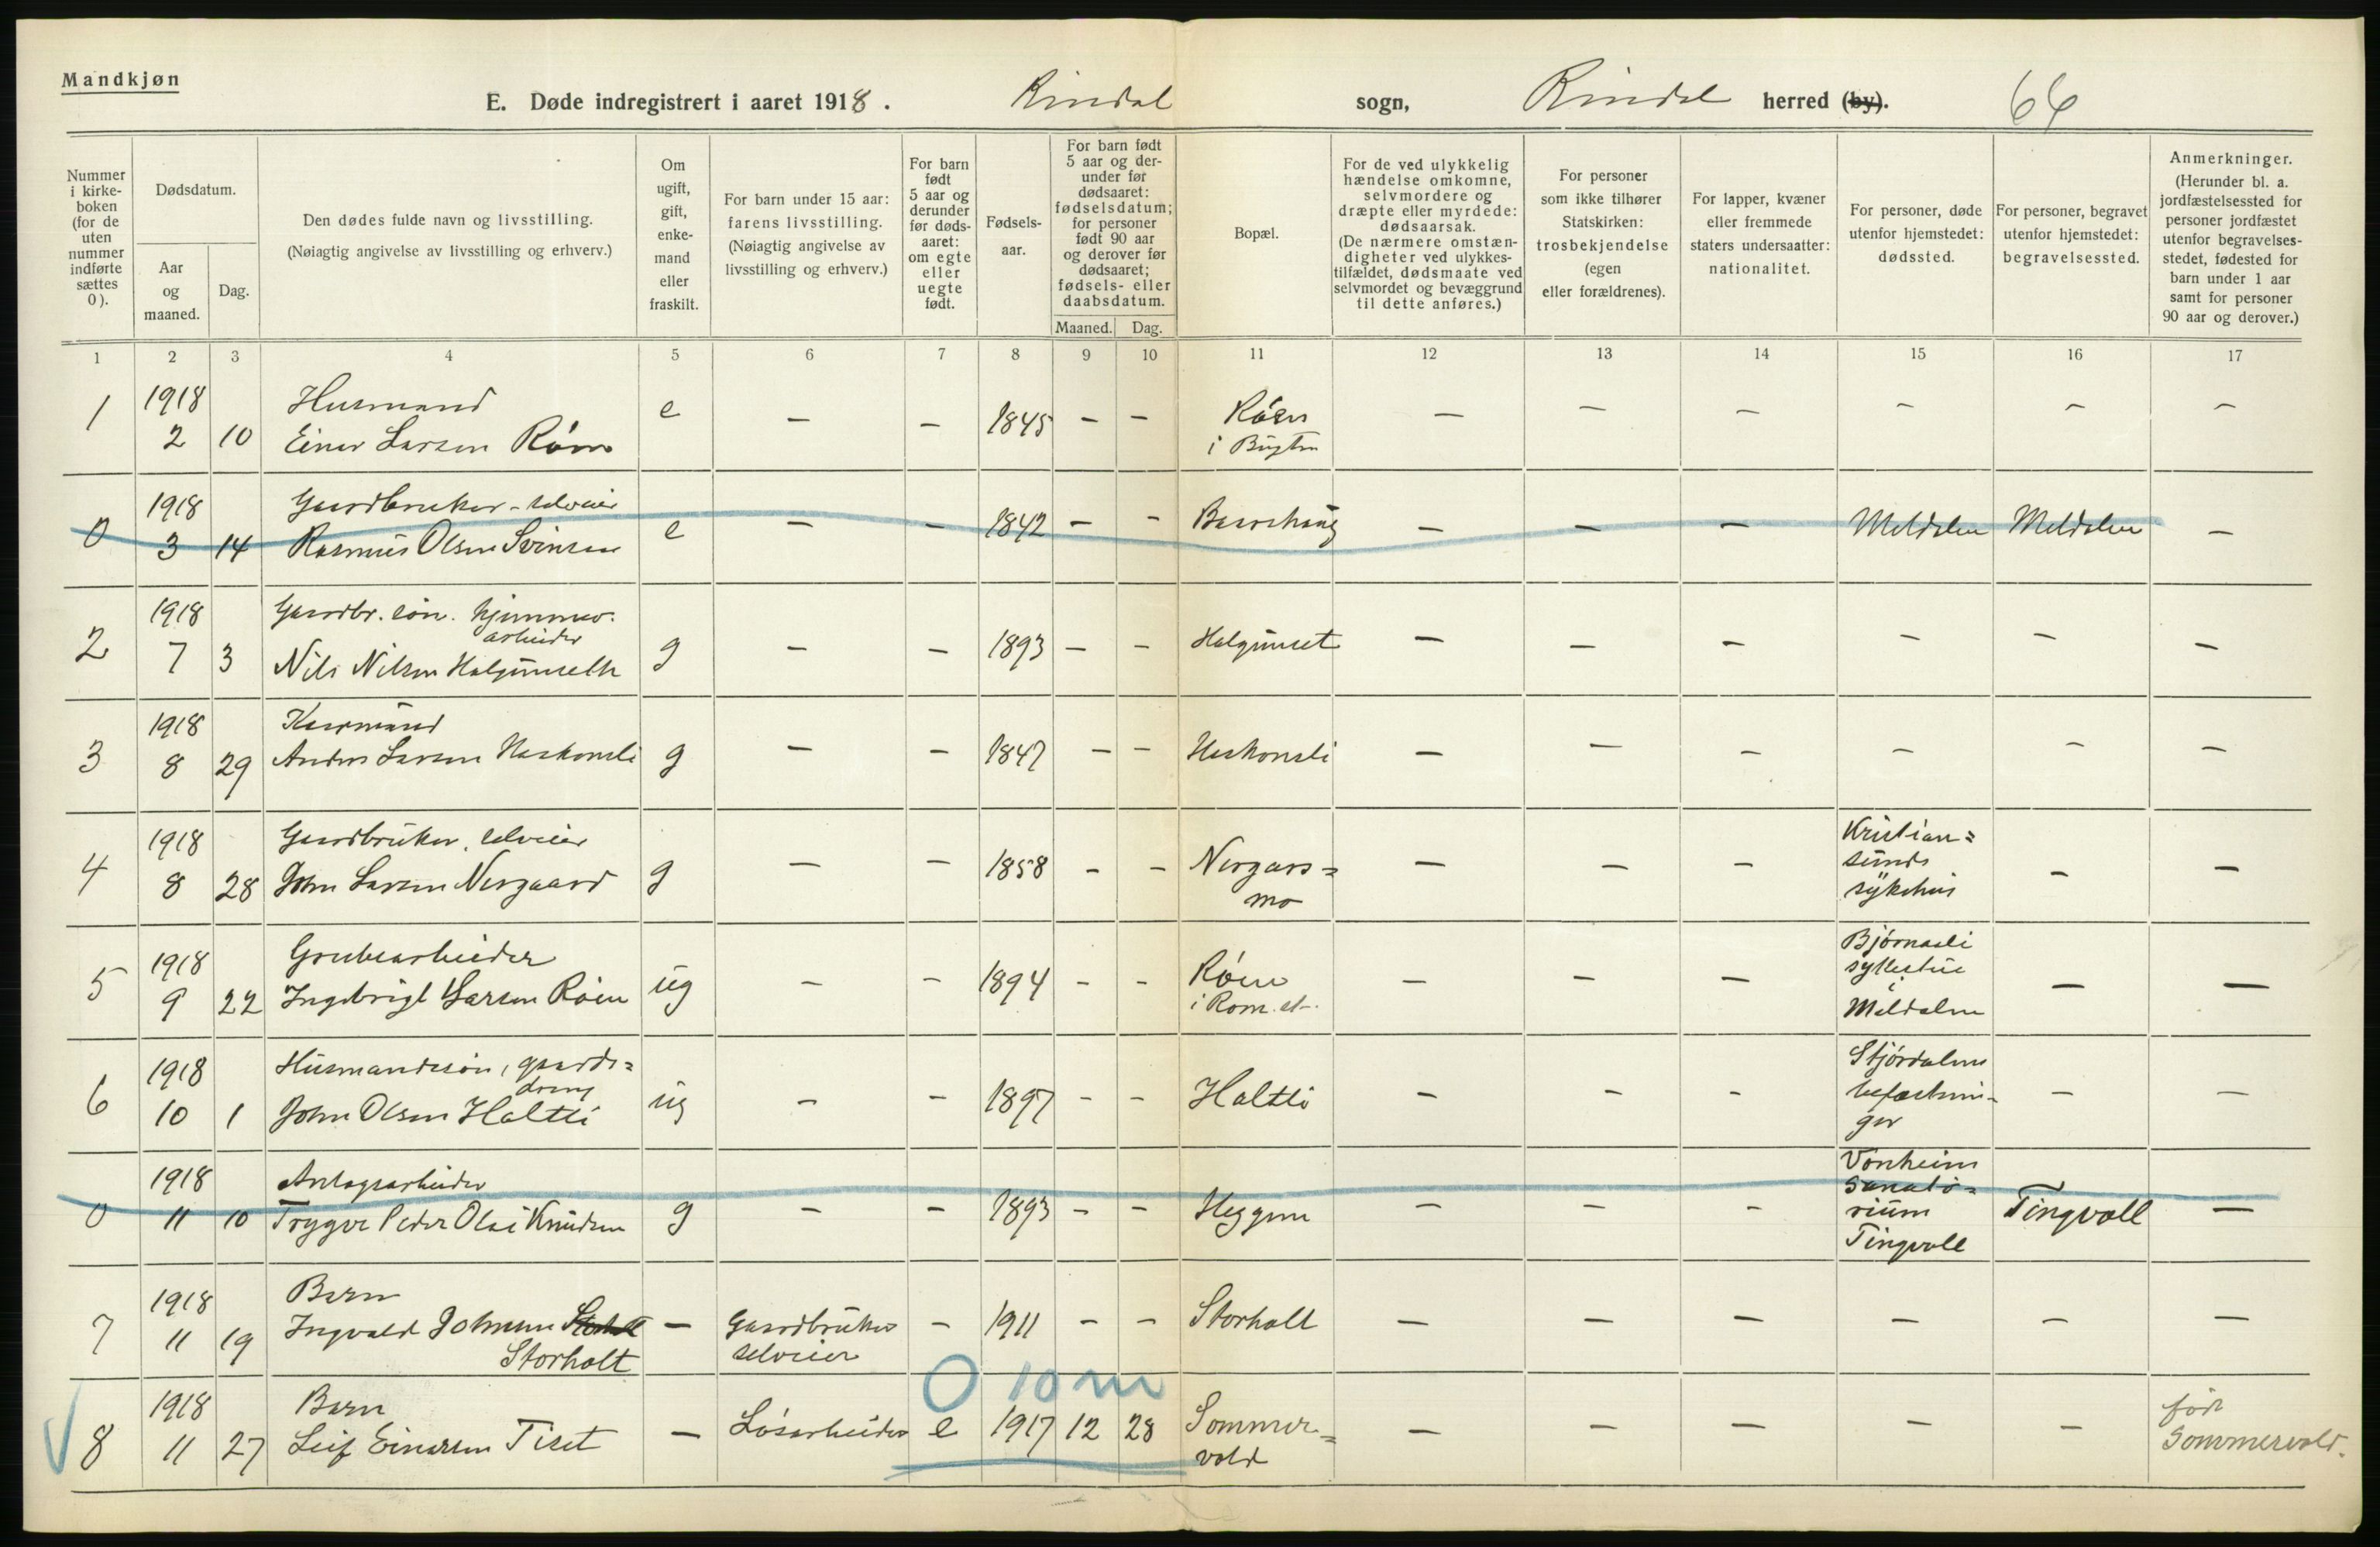 Mandkjøn
E. Døde indregistrert i aaret 1918. Rindal sogn, Rindal herred (by). 66
Nummer i kirkeboken (for de uten nummer indførte sættes 0).
Dødsdatum.
Aar og maaned.
Dag.
Den dødes fulde navn og livsstilling.
(Nøiagtig angivelse av livsstilling og erhverv.)
Om ugift, gift, enkemand eller fraskilt.
For barn under 15 aar: farens livsstilling.
(Nøiagtig angivelse av livsstilling og erhverv.)
For barn født 5 aar og derunder før dødsaaret: om egte eller uegte født.
Fødselsaar.
For barn født 5 aar og derunder før dødsaaret: fødselsdatum; for personer født 90 aar og derover før dødsaaret; fødsels- eller daabsdatum.
Maaned. Dag.
Bopæl.
For de ved ulykkelig hændelse omkomne, selvmordere og dræpte eller myrdede: dødsaarsak.
(De nærmere omstændigheter ved ulykkestilfældet, dødsmaate ved selvmordet og bevæggrund til dette anføres.)
For personer som ikke tilhører Statskirken: trosbekjendelse (egen eller forældrenes).
For lapper, kvæner eller fremmede staters undersaatter: nationalitet.
For personer, døde utenfor hjemstedet: dødssted.
For personer, begravet utenfor hjemstedet: begravelsessted.
Anmerkninger.
(Herunder bl. a. jordfæstelsessted for personer jordfæstet utenfor begravelsesstedet, fødested for barn under 1 aar samt for personer 90 aar og derover.)
1 2 3 4 5 6 7 8 9 10 11 12 13 14 15 16 17
1 1918 2 10 Husmand
Einar Larsen Røen e – – 1845 – – Røen
i Bugten – – – – – –
0 1918 3 14 Gaardbruker - selveier
Rasmus Olsen Svinsaas e – – 1842 – – Baarshaug – – – Meldalen Meldalen –
2 1918 7 3 Gaardbr. søn. hjemmev.
arbeider
Nils Nilsen Halgunseth g – – 1893 – – Halgunset – – – – – –
3 1918 8 29 Kaarmand
Anders Larsen Haakonsli g – – 1847 – – Haakonsli – – – – – –
4 1918 8 28 Gaardbruker, selveier
John Larsen Nergaard g – – 1858 – – Nergars=
mo – – – Kristian=
sunds
sykehus – –
5 1918 9 22 Grubearbeider
Ingebrigt Larsen Røen ug – – 1894 – – Røen
i Rom. at. – – – Bjørnasli
sykestue
i
Meldalen – –
6 1918 10 1 Husmandssøn, gaards=
dreng
John Olsen Haltli ug – – 1897 – – Haltli – – – Stjørdalens
befæstnin-
ger – –
0 1918 11 10 Anlagsarbeider
Trygve Peder Olai Knudsen g – – 1893 – – Heggem – – – Vonheim
sanato=
rium
Tingvoll Tingvoll –
7 1918 11 19 Barn
Ingvald Johnsen Storholt
Storholt – Gaardbruker
selveier – 1911 – – Storholt – – – – – –
0 10 m
8 1918 11 27 Barn
Leif Einarsen Tiset – Løsarbeider e 1917 12 28 Sommer=
vold – – – – – født
Sommervold.